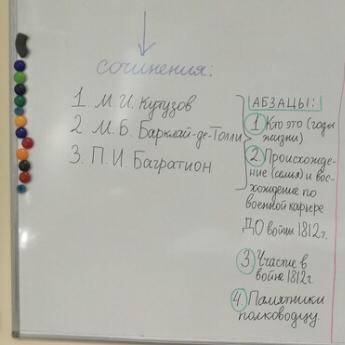 сочинения:
1 М.И. Кутузов
2 М.Б. Барклай-де-Толли
3. П.И. Багратион
АБЗАЦЫ:
1 Кто это (годы
жизни)
2 Происхожде-
ние (семья) и вос-
хождение по
военной карьере
ДО войны 1812г.
3 Участие в
войне 1812г.
4 Памятники
полководцу.